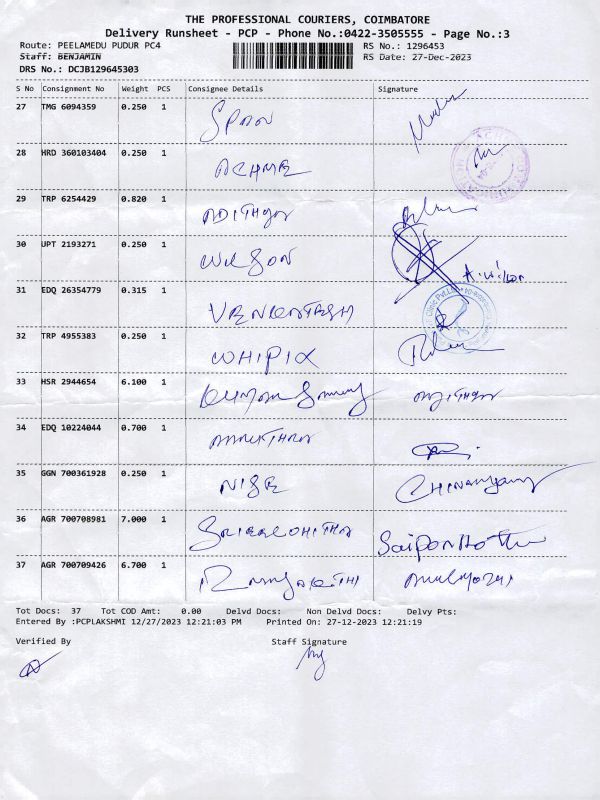 THE PROFESSIONAL COURIERS, COIMBATORE
Delivery Runsheet - PCP - Phone No.:0422-3505555 - Page No.:3
Route: PEELAMEDU PUDUR PC4 RS No.: 1296453
Staff: BENJAMIN RS Date: 27-Dec-2023
DRS No.: DCJB129645303
S No Consignment No Weight PCS Consignee Details Signature
27 TMG 6094359 0.250 1
28 HRD 360103404 0.250 1 ACHME
29 TRP 6254429 0.820 1 ADITHYA
30 UPT 2193271 0.250 1 WILSON
31 EDQ 26354779 0.315 1 VENKATESH
32 TRP 4955383 0.250 1 WHIPIX
33 HSR 2944654 6.100 1
34 EDQ 10224044 0.700 1
35 GGN 700361928 0.250 1
36 AGR 700708981 7.000 1
37 AGR 700709426 6.700 1
Tot Docs: 37 Tot COD Amt: 0.00 Delvd Docs: Non Delvd Docs: Delvy Pts:
Entered By :PCPLAKSHMI 12/27/2023 12:21:03 PM Printed On: 27-12-2023 12:21:19
Verified By Staff Signature